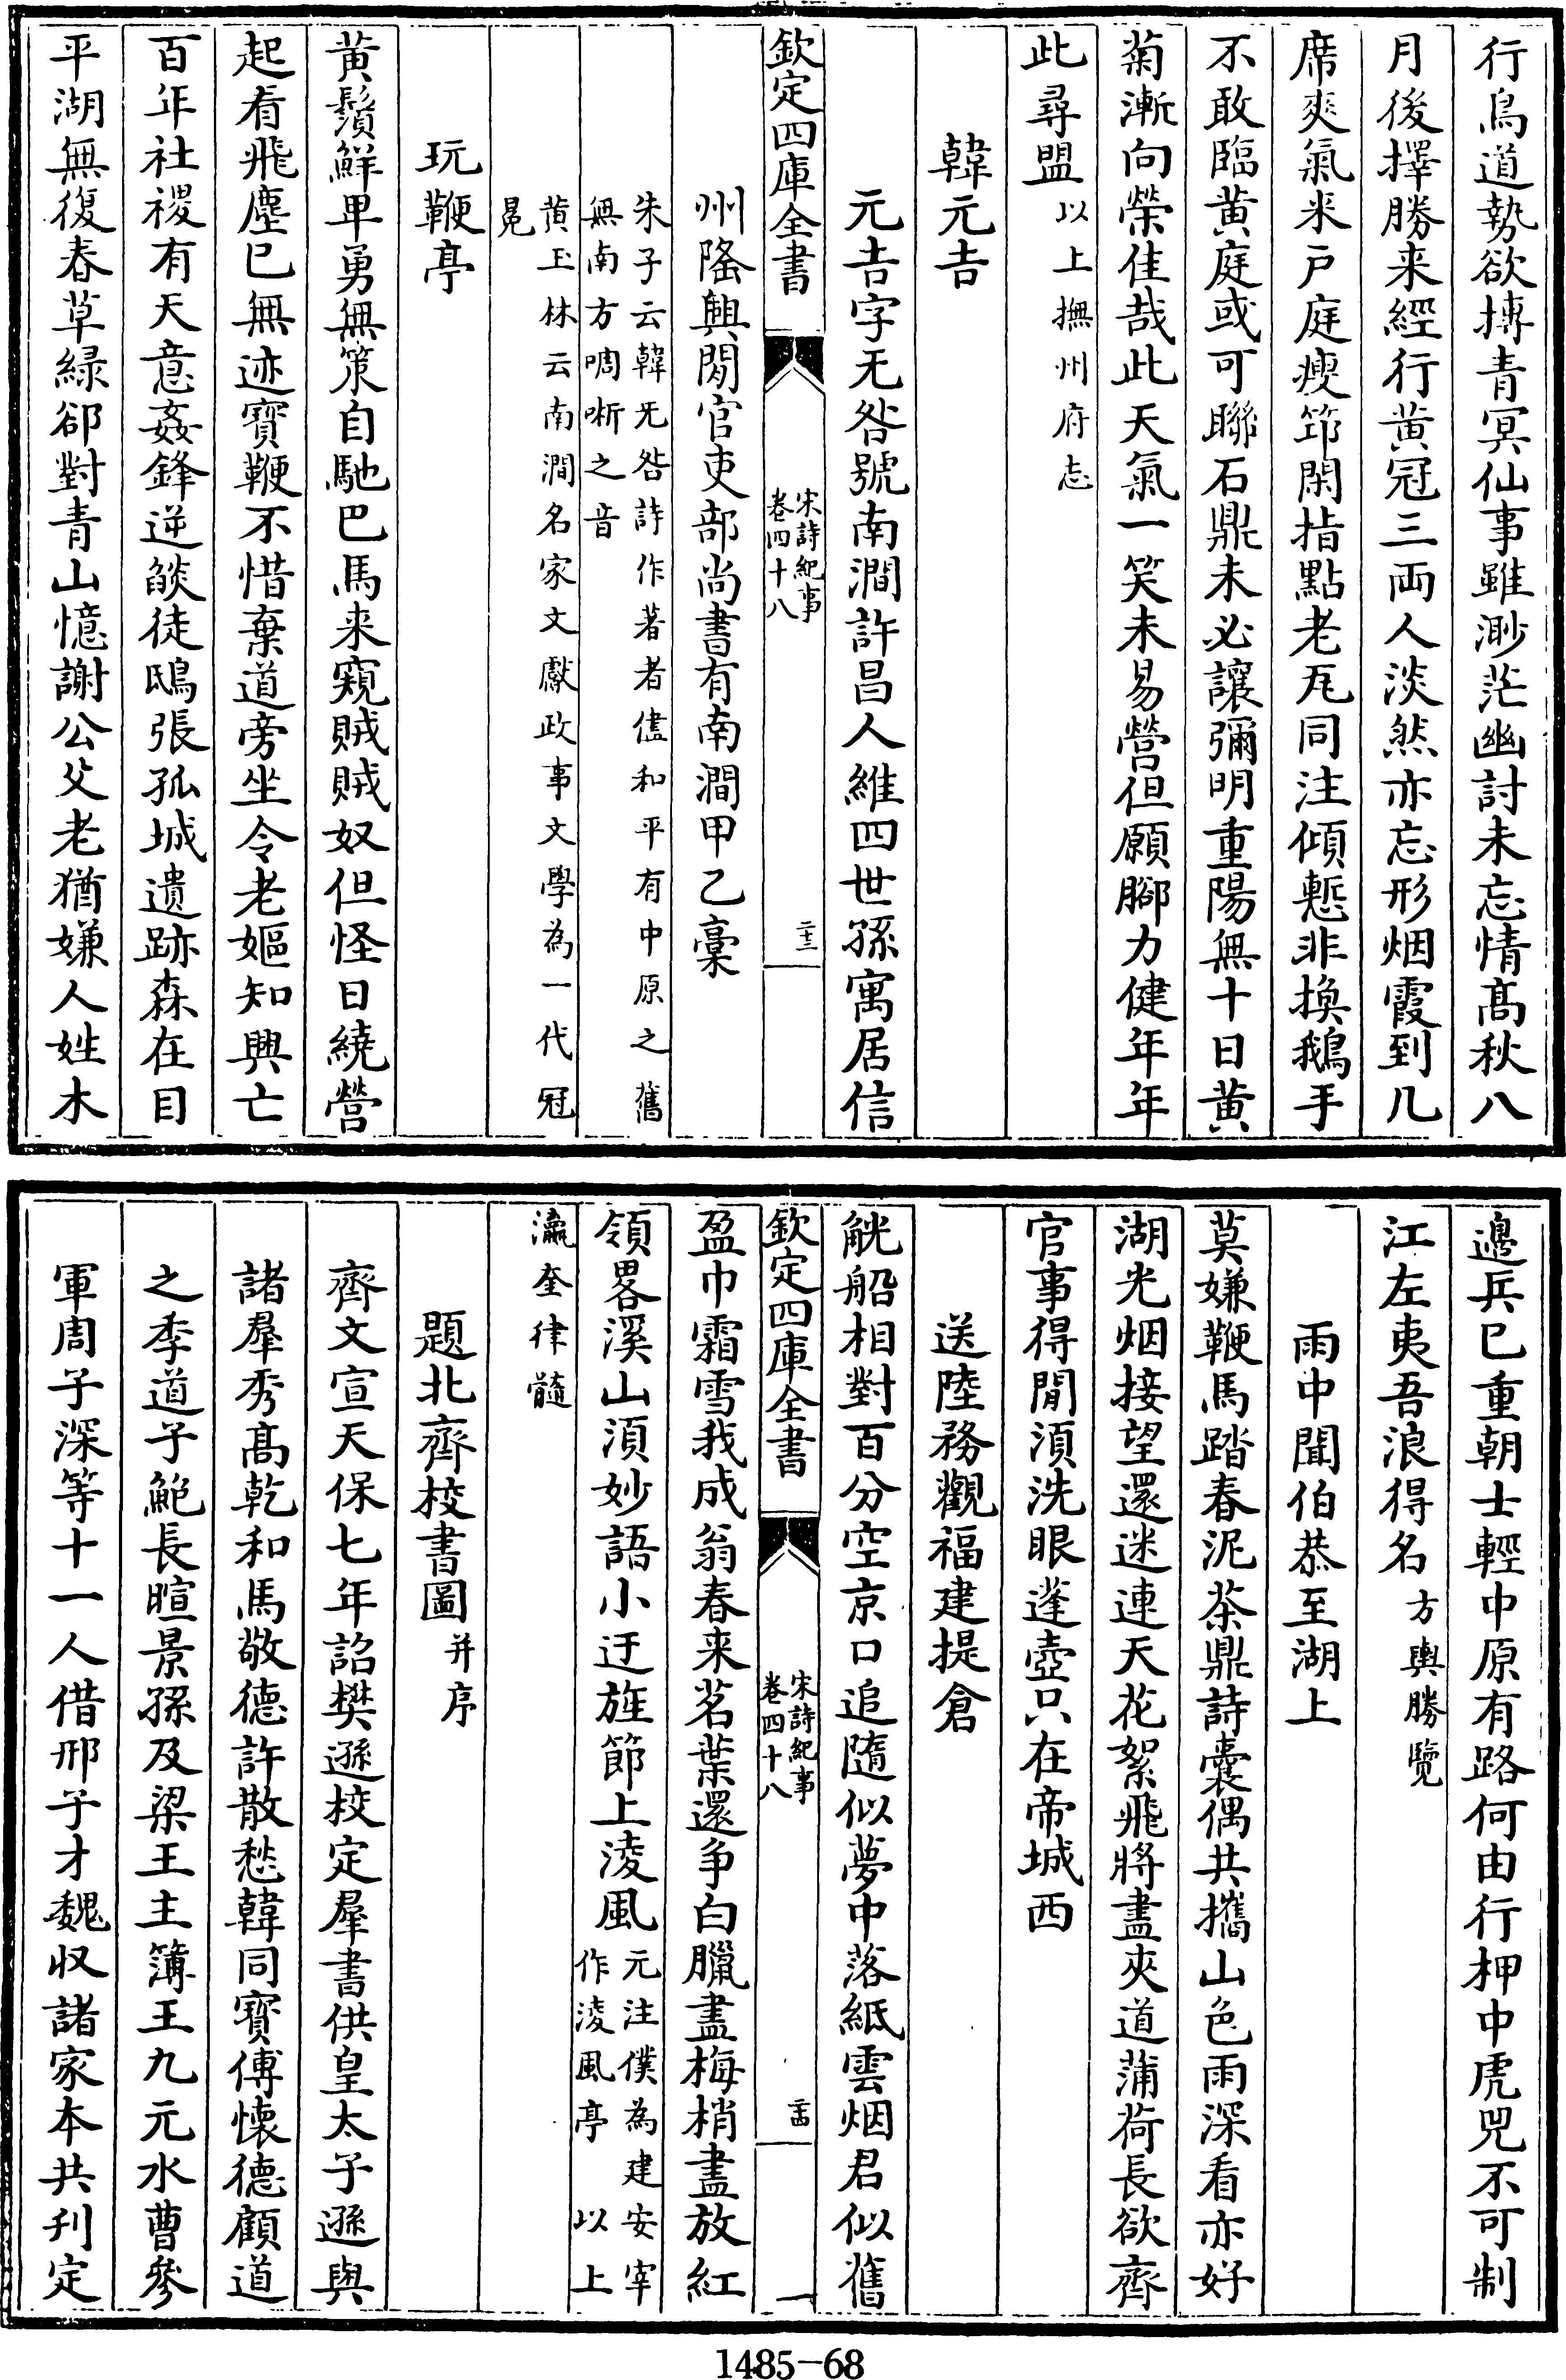 行鳥道勢欲摶青冥仙事雖渺茫幽討未忘情髙秋八
月後擇勝来經行黄冠三両人淡然亦忘形烟霞到几
席爽氣来戸庭瘦筇閑指點老瓦同注傾慙非換鵝手
不敢臨黄庭或可聯石鼎未必讓彌明重陽無十日黄
菊漸向榮佳哉此天氣一笑未易營但願腳力健年年
此尋盟以上撫州府志
韓元吉
元吉字无咎號南澗許昌人維四世孫寓居信
欽定四庫全書
宋詩紀事
卷四十八
二十三
州隆興閒官吏部尚書有南澗甲乙稾
朱子云韓无咎詩作著者儘和平有中原之舊
無南方啁哳之音
黄玉林云南澗名家文獻政事文學為一代冠
冕
玩鞭亭
黄鬚鮮卑勇無策自馳巴馬来窺賊賊奴但怪日繞營
起看飛塵已無迹寳鞭不惜棄道旁坐令老嫗知興亡
百年社稷有天意姦鋒逆燄徒鴟張孤城遺跡森在目
平湖無復春草緑郤對青山憶謝公父老猶嫌人姓木
邉兵已重朝士輕中原有路何由行柙中虎兕不可制
江左夷吾浪得名方輿勝覽
雨中聞伯恭至湖上
莫嫌鞭馬踏春泥茶鼎詩囊偶共攜山色雨深看亦好
湖光烟接望還迷連天花絮飛將盡夾道蒲荷長欲齊
官事得閒湏洗眼蓬壺只在帝城西
送陸務觀福建提倉
觥船相對百分空京口追隨似夢中落紙雲烟君似舊
欽定四庫全書
宋詩紀事
卷四十八
二十四
盈巾霜雪我成翁春来茗葉還争白臘盡梅梢盡放紅
領畧溪山湏妙語小迂旌節上淩風元注僕為建安宰
作淩風亭　以上
瀛奎律髓
題北齊校書圖并序
齊文宣天保七年詔樊遜挍定羣書供皇太子遜與
諸羣秀髙乾和馬敬德許散愁韓同寳傅懐德顧道
之李道子鮑長暄景孫及梁王主簿王九元水曹參
軍周子深等十一人借邢子才魏収諸家本共刋定
1485-68